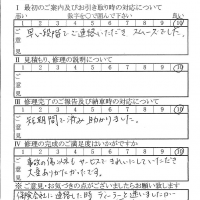 I 最初のご案内及びお引き取り時の対応について
悪い 数字を○で囲んで下さい 良い
1 2 3 4 5 6 7 8 9 10
ご意見
早い段階でご連絡いただき スムーズでした。
II 見積もり、修理の説明について
1 2 3 4 5 6 7 8 9 10
ご意見
III 修理完了のご報告及び納車時の対応について
1 2 3 4 5 6 7 8 9 10
ご意見
短期間で済み助かりました。
IV 修理の完成のご満足度はいかがですか
1 2 3 4 5 6 7 8 9 10
ご意見
サービスできれいにしていただで
大変ありがたかったです。
※ご意見・お気づきの点がございましたらお願い致します
保険会社に連絡した時 ディーラーと迷いましたが